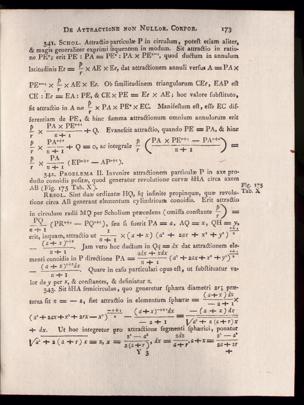 DE ATTRACTIONE NON NULLOR. CORPOR. 173
341. SCHOL. Attractio particulæ P in circulum, potest etiam aliter,
& magis generaliter exprimi sequentem in modum. Sit attractio in ratio-
ne PEⁿ; erit PE : PA == PEⁿ : PA × PEⁿ⁻¹, quod ductum in annulum
latitudinis Er == p/r × AE × Er, dat attractionem annuli versus A == PA ×
PEⁿ⁻¹ × p/r × AE × Er. Ob similitudinem triangulorum CEr, EAP est
CE : Er == EA : PE, & CE × PE == Er × AE; hoc valore substituto,
fit attractio in A ne p/r × PA × PEⁿ × EC. Manifestum est, esse EC dif-
ferentiam de PE, & hinc summa attractionum omnium annulorum erit
p/r × PA × PEⁿ⁺¹ / n + 1 + Q. Evanescit attractio, quando PE == PA, & hinc
p/r × PAⁿ⁺² / n + 1 + Q == 0, ac integrale p/r (PA × PEⁿ⁺¹ — PAⁿ⁺² / n + 1) ==
p/r × PA / n + 1 (EPⁿ⁺¹ — APⁿ⁺¹).
342. PROBLEMA II. Invenire attractionem particulæ P in axe pro-
ducto conoidis positæ, quod generatur revolutione curvæ AHA circa axem
AB (Fig. 175 Tab. X).
Fig. 175
Tab. X.
RESOL. Sint duæ ordinatæ HQ, hq infinite propinquæ, quæ revolu-
tione circa AB generant elementum cylindricum conoidis. Erit attractio
in circulum radii MQ per Scholium præcedens (omissa constante p/r) ==
PQ / n + 1 (PRⁿ⁺¹ — PQⁿ⁺¹), seu si fuerit PA == a, AQ == x, QH == y,
erit, inquam, attractio ut 1 / n + 1 × (a + x) (a² + 2ax + x² + y²)
— (a + x)ⁿ⁺² / n + 1. Jam vero hoc ductum in Qq == dx dat attractionem ele-
menti conoidis in P directione PA == adx + xdx / n + 1 (a² + 2ax + x² + y²)
— (a + x)ⁿ⁺²dx / n + 1. Quare in casu particulari opus est, ut substituatur va-
lor de y per x, & constantes, & definiatur n.
343. Sit AHB semicirculus, quo generetur sphæra diametri 2r; præ-
terea sit n == — 2, fiet attractio in elementum sphæræ == (a + x) dx / — 2 + 1 ×
(a² + 2ax + x² + 2rx — x²) — (a + x)ⁿ⁺²dx / — 2 + 1 == — (a + x) dx / √a² + 2 (a + r) x
+ dx. Ut hoc integretur pro attractione segmenti sphærici, ponatur
√a² + 2 (a + r) x == z, x == z² — a² / 2(a + r), dx == zdz / a + r, a + x == z² — a² / 2a + 2r
Y 3 +